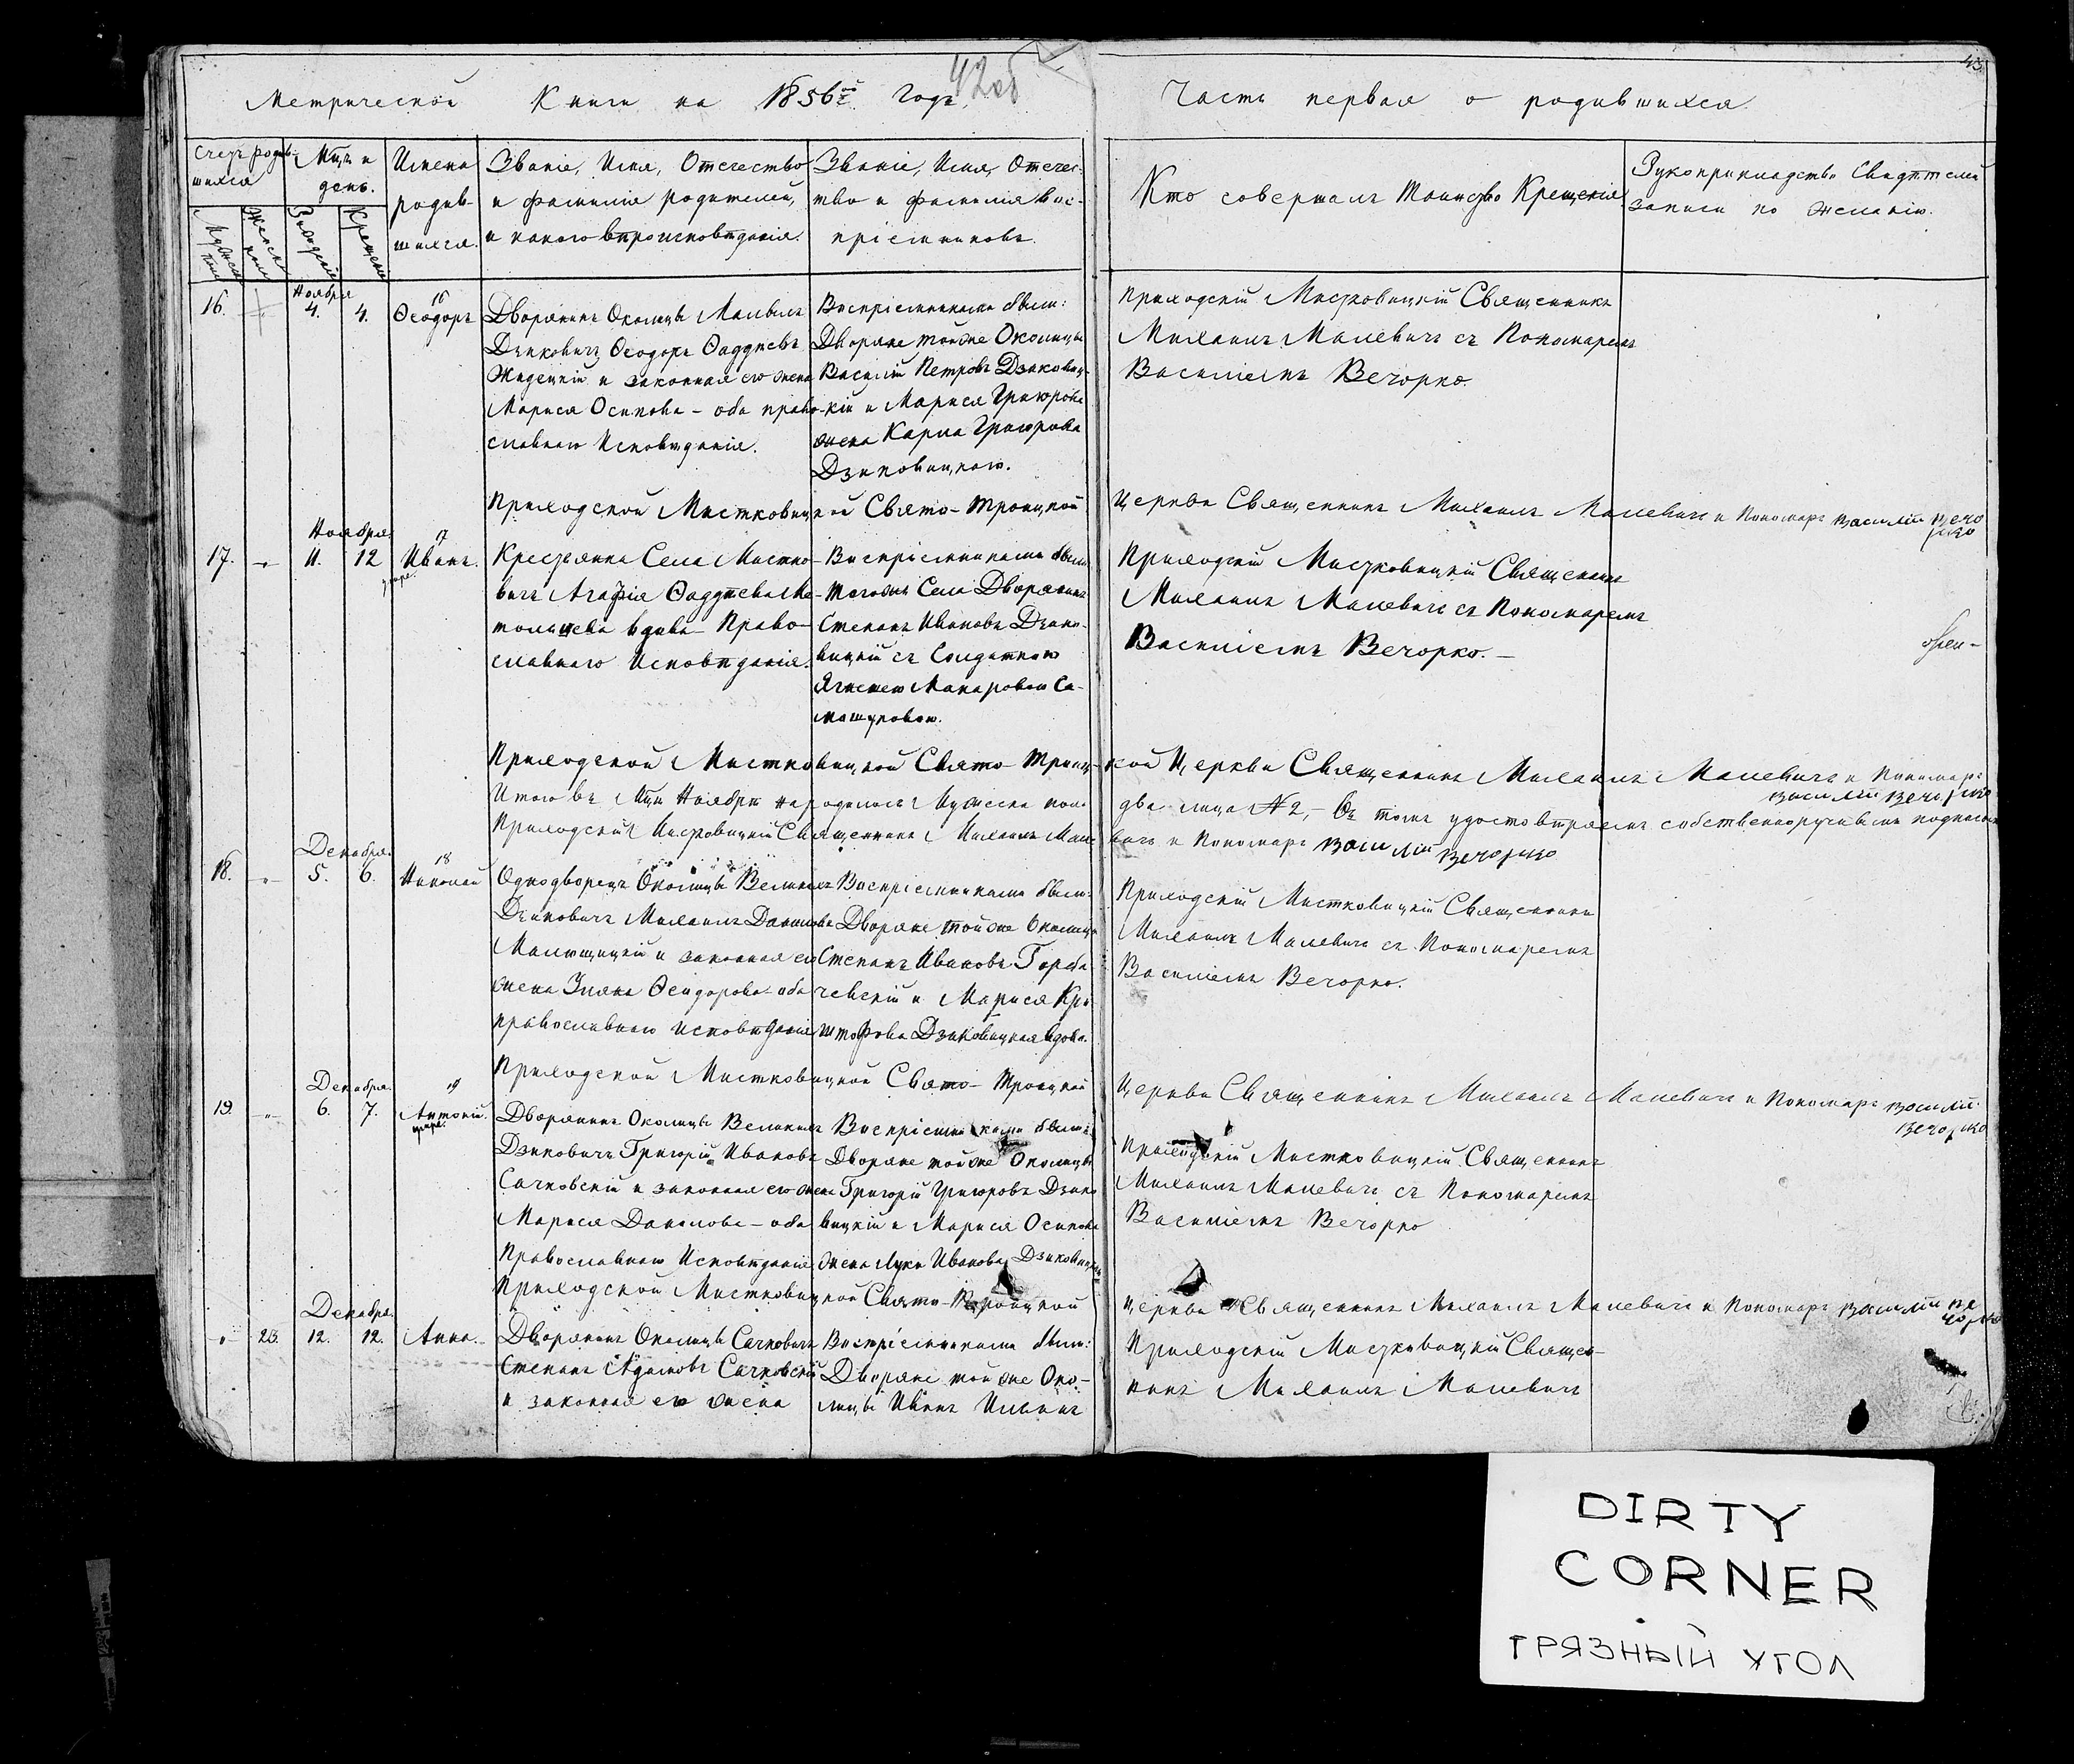 42об
43
Метрической Книги на 1856й Годъ.
Часть первая о родившихся
Счетъ родив-
шихся
Мцъ и
день.
Имена
родив-
шихся.
Званіе, Имя, Отечество
и фамилія родителей,
и какого вѣроисповѣданія.
Званіе, Имя, Отечес-
тво и фамилія вос-
пріемниковъ.
Кто совершалъ Таинство Крещенія
Рукоприкладство Свидѣтелей
записи по желанію.
Ноября
16. 4. 4. Ѳеодоръ
16
Дворянинъ Околицы Малыхъ
Дзиковичъ Ѳеодоръ Ѳаддѣевъ
Жидецкій и законная его жена
Марися Осипова – оба право-
славнаго Исповѣданія.
Воспріемниками были:
Дворяне тойже Околицы
Василій Петровъ Дзиковиц-
кій и Марися Григорова
жена Карпа Григорова
Дзиковицкаго.
Приходскій Мистковицкій Священникъ
Михаилъ Малевичъ съ Пономаремъ
Василіемъ Вечорко.
Приходской Мистковицкой Свято-Троицкой Церкви Священникъ Михаилъ Малевичъ и Пономарь Василій Вечо
рко
Ноября
17. 11. 12 Иванъ.
17
умре.
Крестьянка Села Мистко-
вичъ Агафія Ѳаддѣева
вдова – Право-
славнаго Исповѣданія.
Воспріемниками были
тогожъ Села Дворянинъ
Степанъ Ивановъ Дзико-
вицкій съ Солдаткою
Макаровою Са-
Приходскій Мистковицкій Священникъ
Михаилъ Малевичъ съ Пономаремъ
Василіемъ Вечорко. –
Приходской Мистковицкой Свято-Троиц-кой Церкви Священникъ Михаилъ Малевичъ и Пономарь
Василій Вечорко
Итого въ Мцѣ Ноябрѣ народилось Мужеска пола два лица №2, – Въ томъ удостовѣряемъ собственноручнымъ подписомъ
Приходскій Мистковицкій Священникъ Михаилъ Мале-вичъ и Пономарь Василій Вечорко
Декабря.
18. 5. 6. Николай
18
Однодворецъ Околицы Великихъ
Дзиковичъ Михаилъ Данилова
и законная его
жена Осидорова – оба
православнаго исповѣданія
Воспріемниками были:
Дворяне тойже Околицы
Степанъ Ивановъ Горба-
чевскій и Марися Кри-
штофова Дзиковицкая вдова.
Приходскій Мистковицкій Священникъ
Михаилъ Малевичъ съ Пономаремъ
Василіемъ Вечорко.
Приходской Мистковицкой Свято-Троицкой Церкви Священникъ Михаилъ Малевичъ и Пономарь Василій
Вечорко
Декабря.
19. 6. 7. Антоній.
19
умре.
Дворянинъ Околицы Великихъ
Дзиковичъ Григорій Ивановъ
Сачковскій и законная его жена
Марися Данилова – оба
Православнаго Исповѣданія
Воспріемниками были:
Дворяне тойже Околицы
Григорій Григоровъ Дзико-
вицкій и Марися Осипова
жена Луки Иванова Дзиковицкаго
Приходскій Мистковицкій Священникъ
Михаилъ Малевичъ съ Пономаремъ
Василіемъ Вечорко
Приходской Мистковицкой Свято-Троицкой Церкви Священникъ Михаилъ Малевичъ и Пономарь Василій Ве
чорко
Декабря.
20. 12. 12. Анна.
Дворянинъ Околицы Сачковичъ
Степанъ Адамовъ Сачковскій
и законная его жена
Воспріемниками были:
Дворяне тойже Око-
лицы Иванъ Ильинъ
Приходскій Мистковицкій Священ-
никъ Михаилъ Малевичъ
DIRTY
CORNER
ГРЯЗНЫЙ УГОЛ